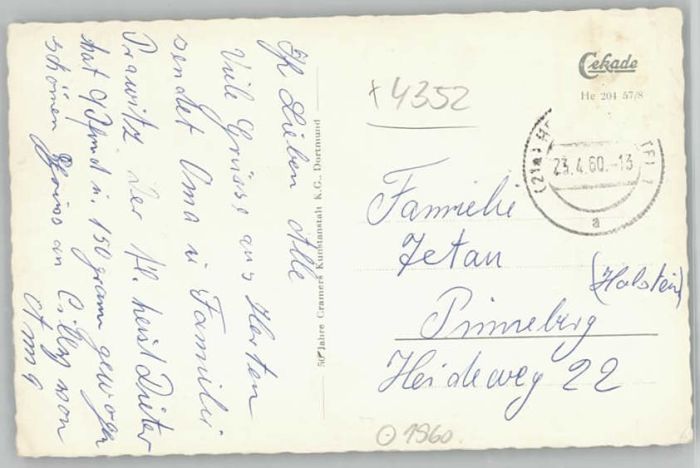 Ihr Lieben Alle
Viele Grüsse aus Herten
sendet Oma u Familie
Prawitz der kl. heist Dieter
hat 9 Pfund u. 150 gramm gewogen
schönen Gruss an Cilly von
Oma
50 Jahre Cramers Kunstanstalt K.G., Dortmund
+4352
Cekade
He 204 57/8
(21a) HE
23.4.60.-13
a
Familie
Jetau
(Holstein)
Pinneberg
Heideweg 22
O 1960.